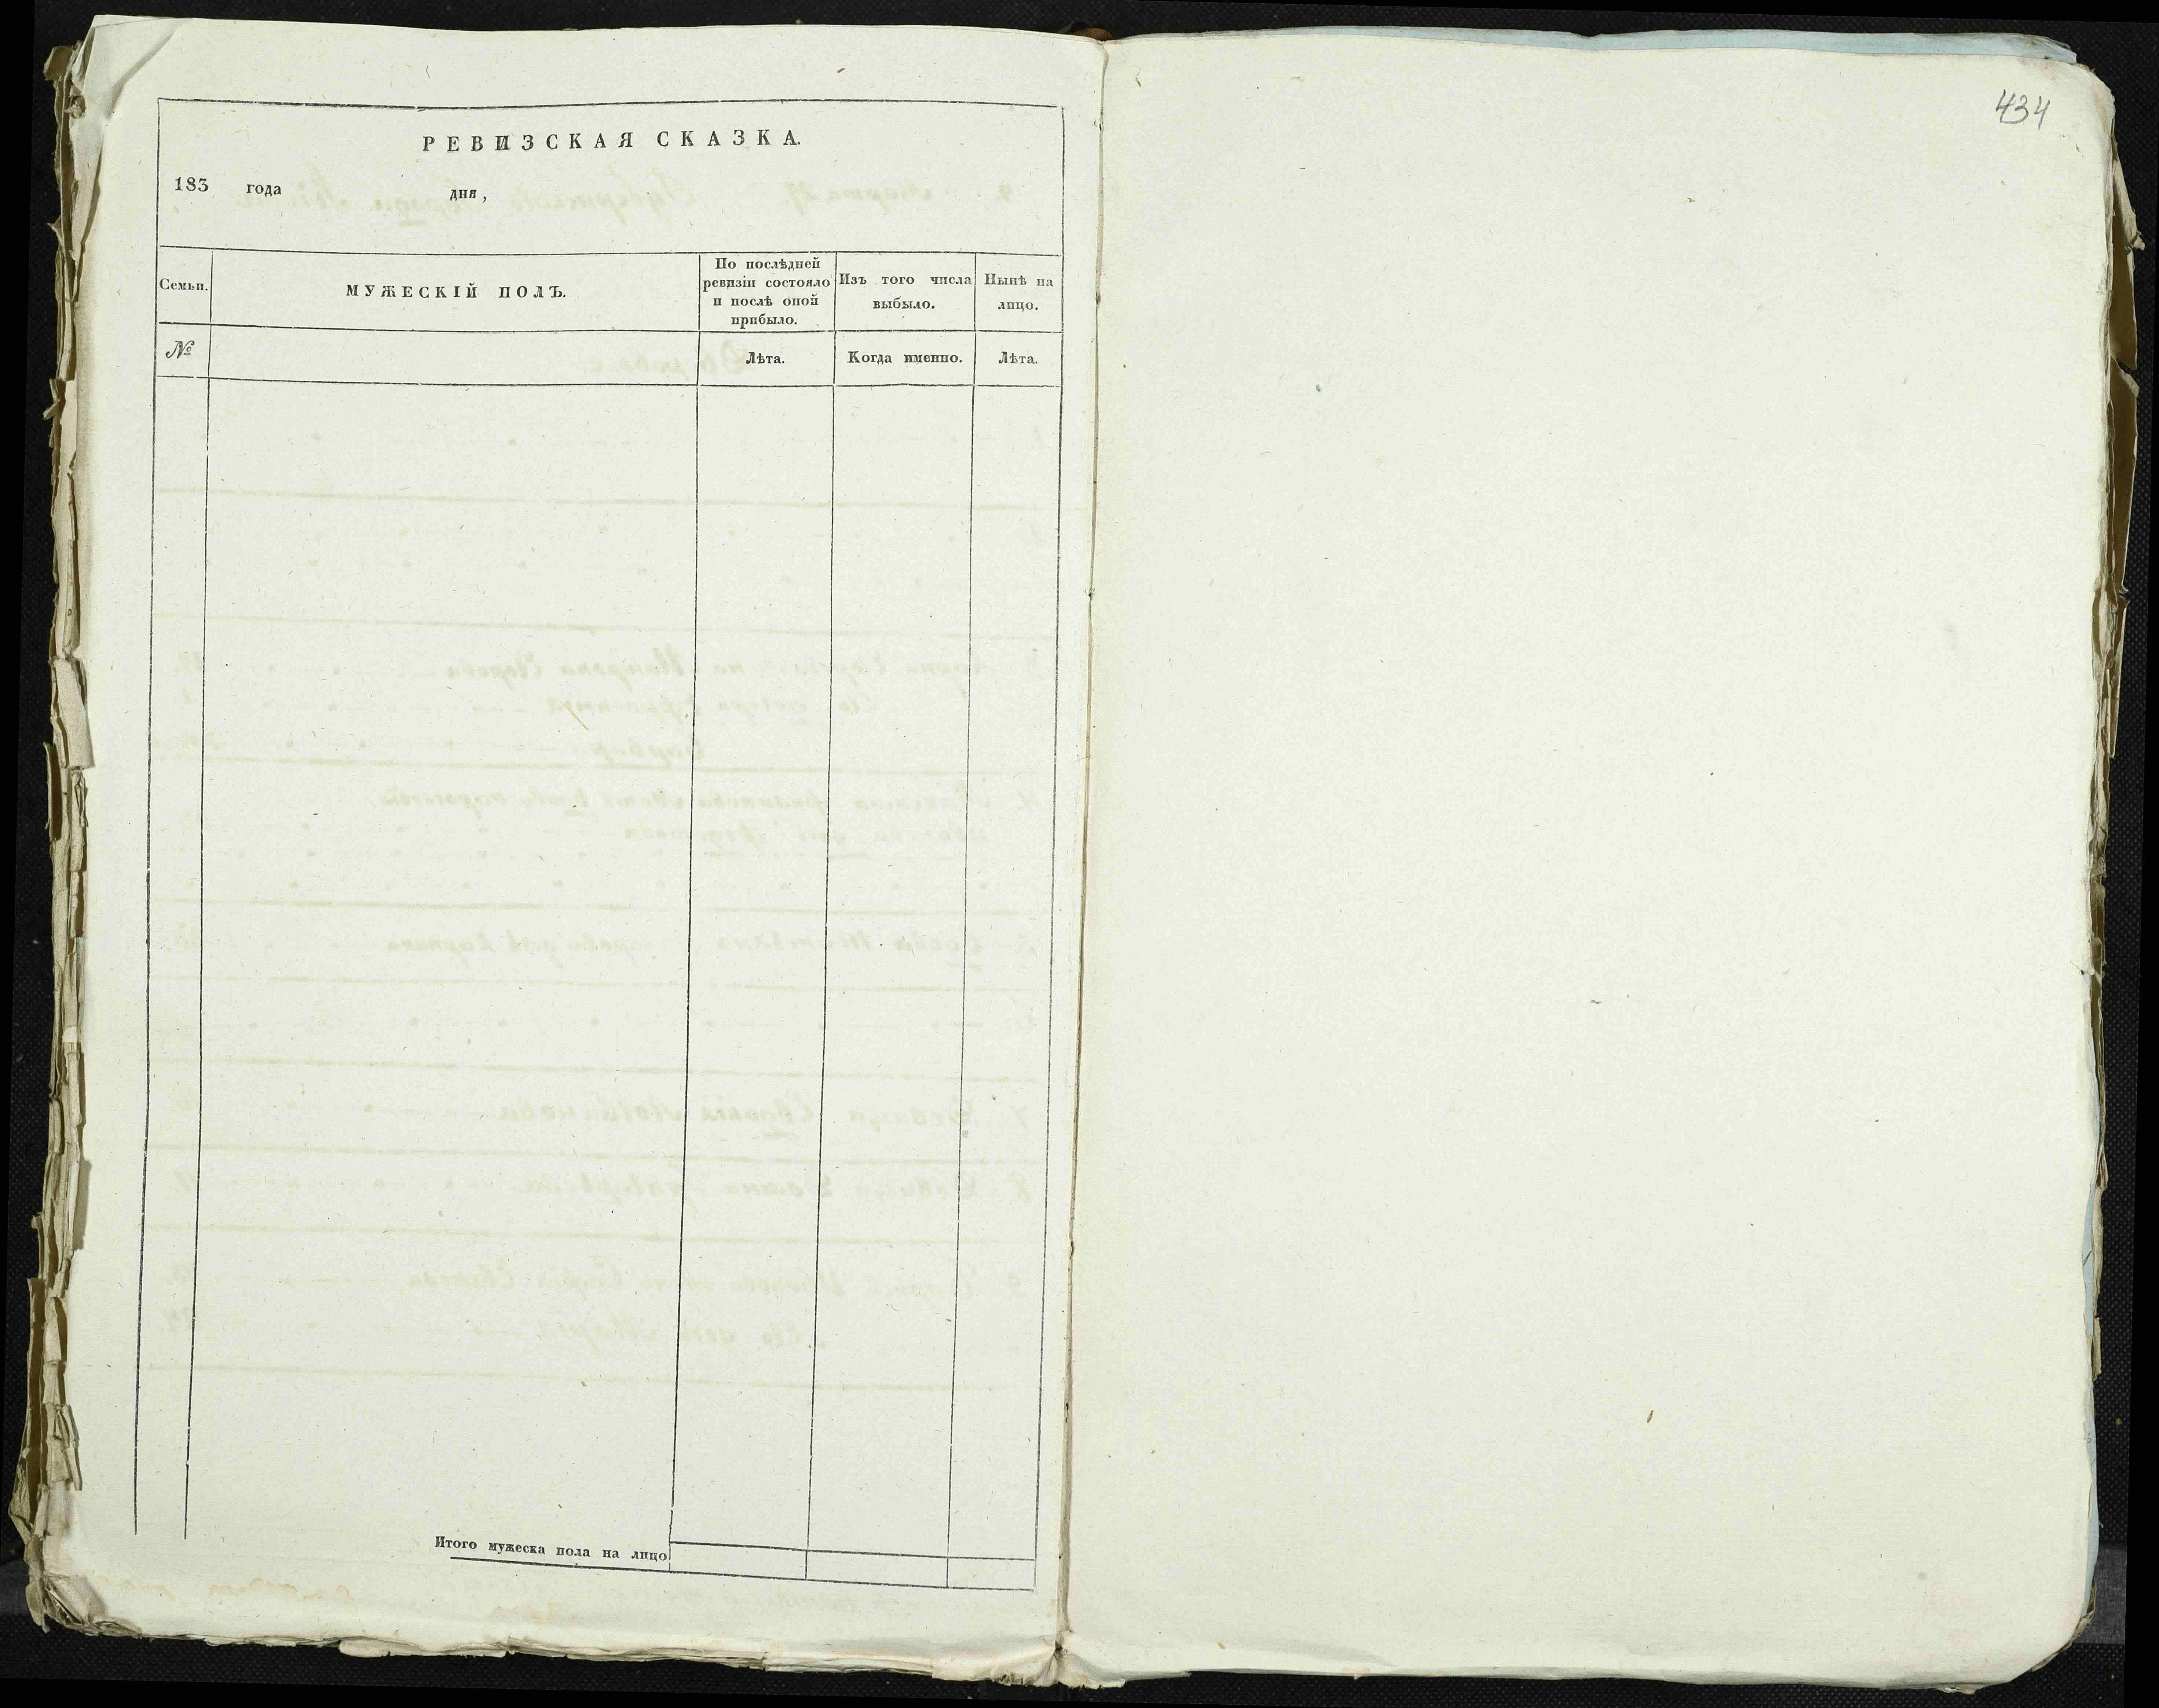 434
РЕВИЗСКАЯ СКАЗКА.
183 года дня,
Семьи.
МУЖЕСКІЙ ПОЛЪ.
По послѣдней
ревизіи состояло
и послѣ оной
прибыло.
Изъ того числа
выбыло.
Нынѣ на
лицо.
№
Лѣта.
Когда именно.
Лѣта.
Итого мужеска пола на лицо